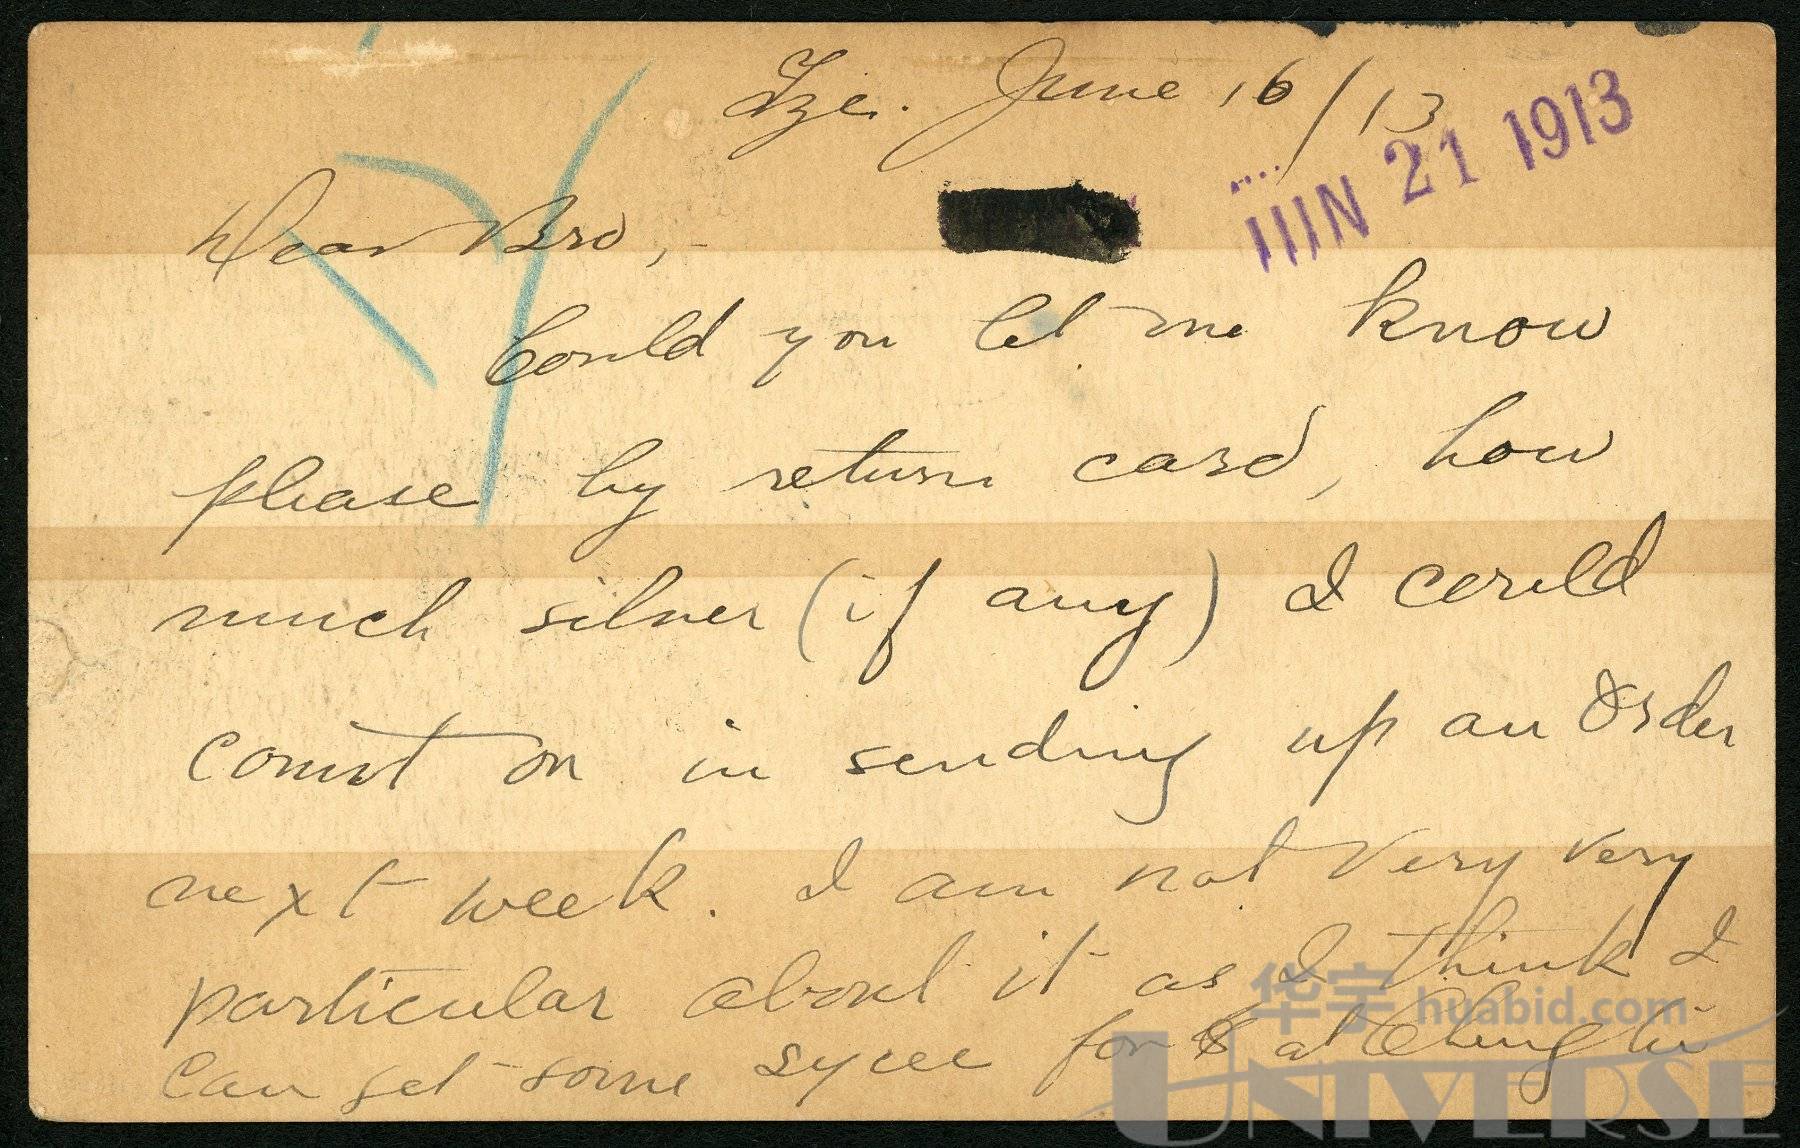 Tze. June 16/13
JUN 21 1913
Dear Bro,-
Could you let me know
please by return card, how
much silver (if any) I could
count on in sending up an Order
next week. I am not very very
particular about it as I think I
can get some sycee for $ at Chungking
华宇 huabid.com
UNIVERSE